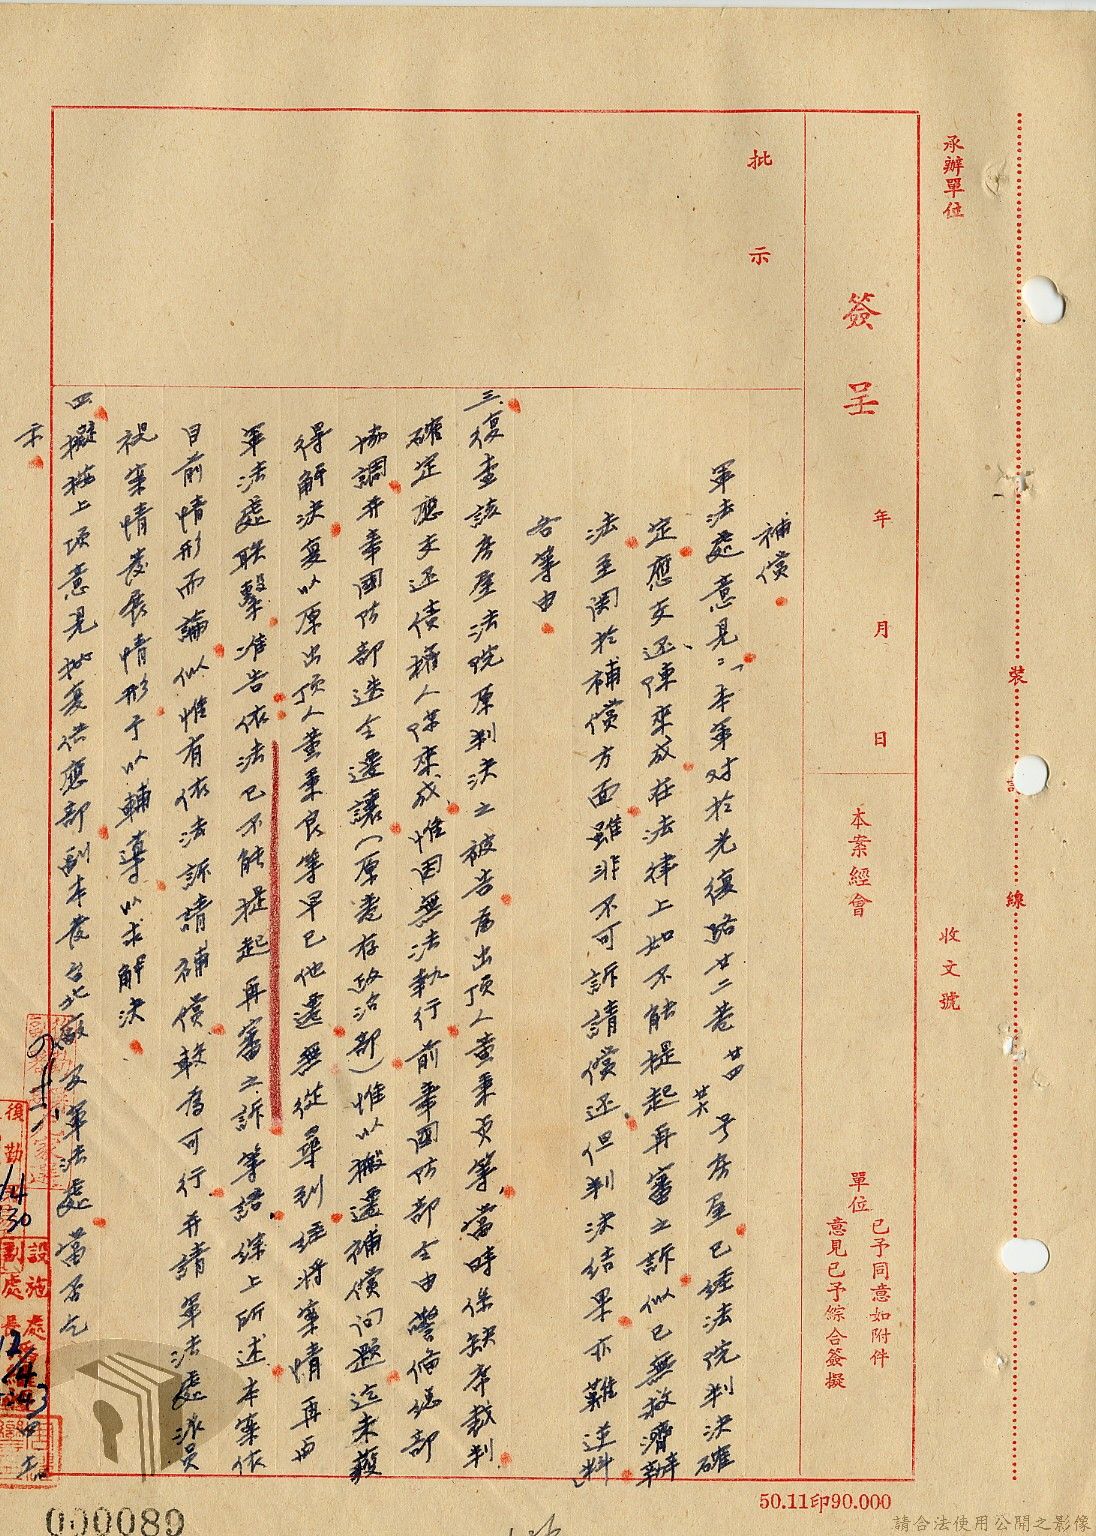 承辦單位
收文號
裝
訂
線
簽呈
年 月 日
本案經會
單位
已予同意如附件
意見已予綜合簽擬
批示
補償
軍法處意見：「本軍对於光復路廿二巷廿四
廿六号房屋已經法院判決確
定應交还陳來成在法律上如不能提起再審之訴似已無救濟辦
法至関於補償方面雖非不可訴請償还但判決結果亦難逆料」
各等由
三、復查該房屋法院原判決之被告為出頂人黃秉更等當時係缺席裁判
確定應交还債權人陳來成惟因無法執行前奉國防部令由警備總部
協調并奉國防部迭令遷讓（原卷存政治部）惟以搬遷補償问題迄未獲
得解決复以原出頂人黃秉良等早已他遷無從尋到經將案情再与
軍法處联繫准告依法已不能提起再審之訴等語綜上所述本案依
目前情形而論似惟有依法訴請補償較為可行并請軍法處派員
視案情發展情形予以輔導以求解決
四、擬按上項意見批复供應部副本發台北廠及軍法處當否乞
示
後勤
設施處
副處長
000089
50.11印90.000
請合法使用公開之影像